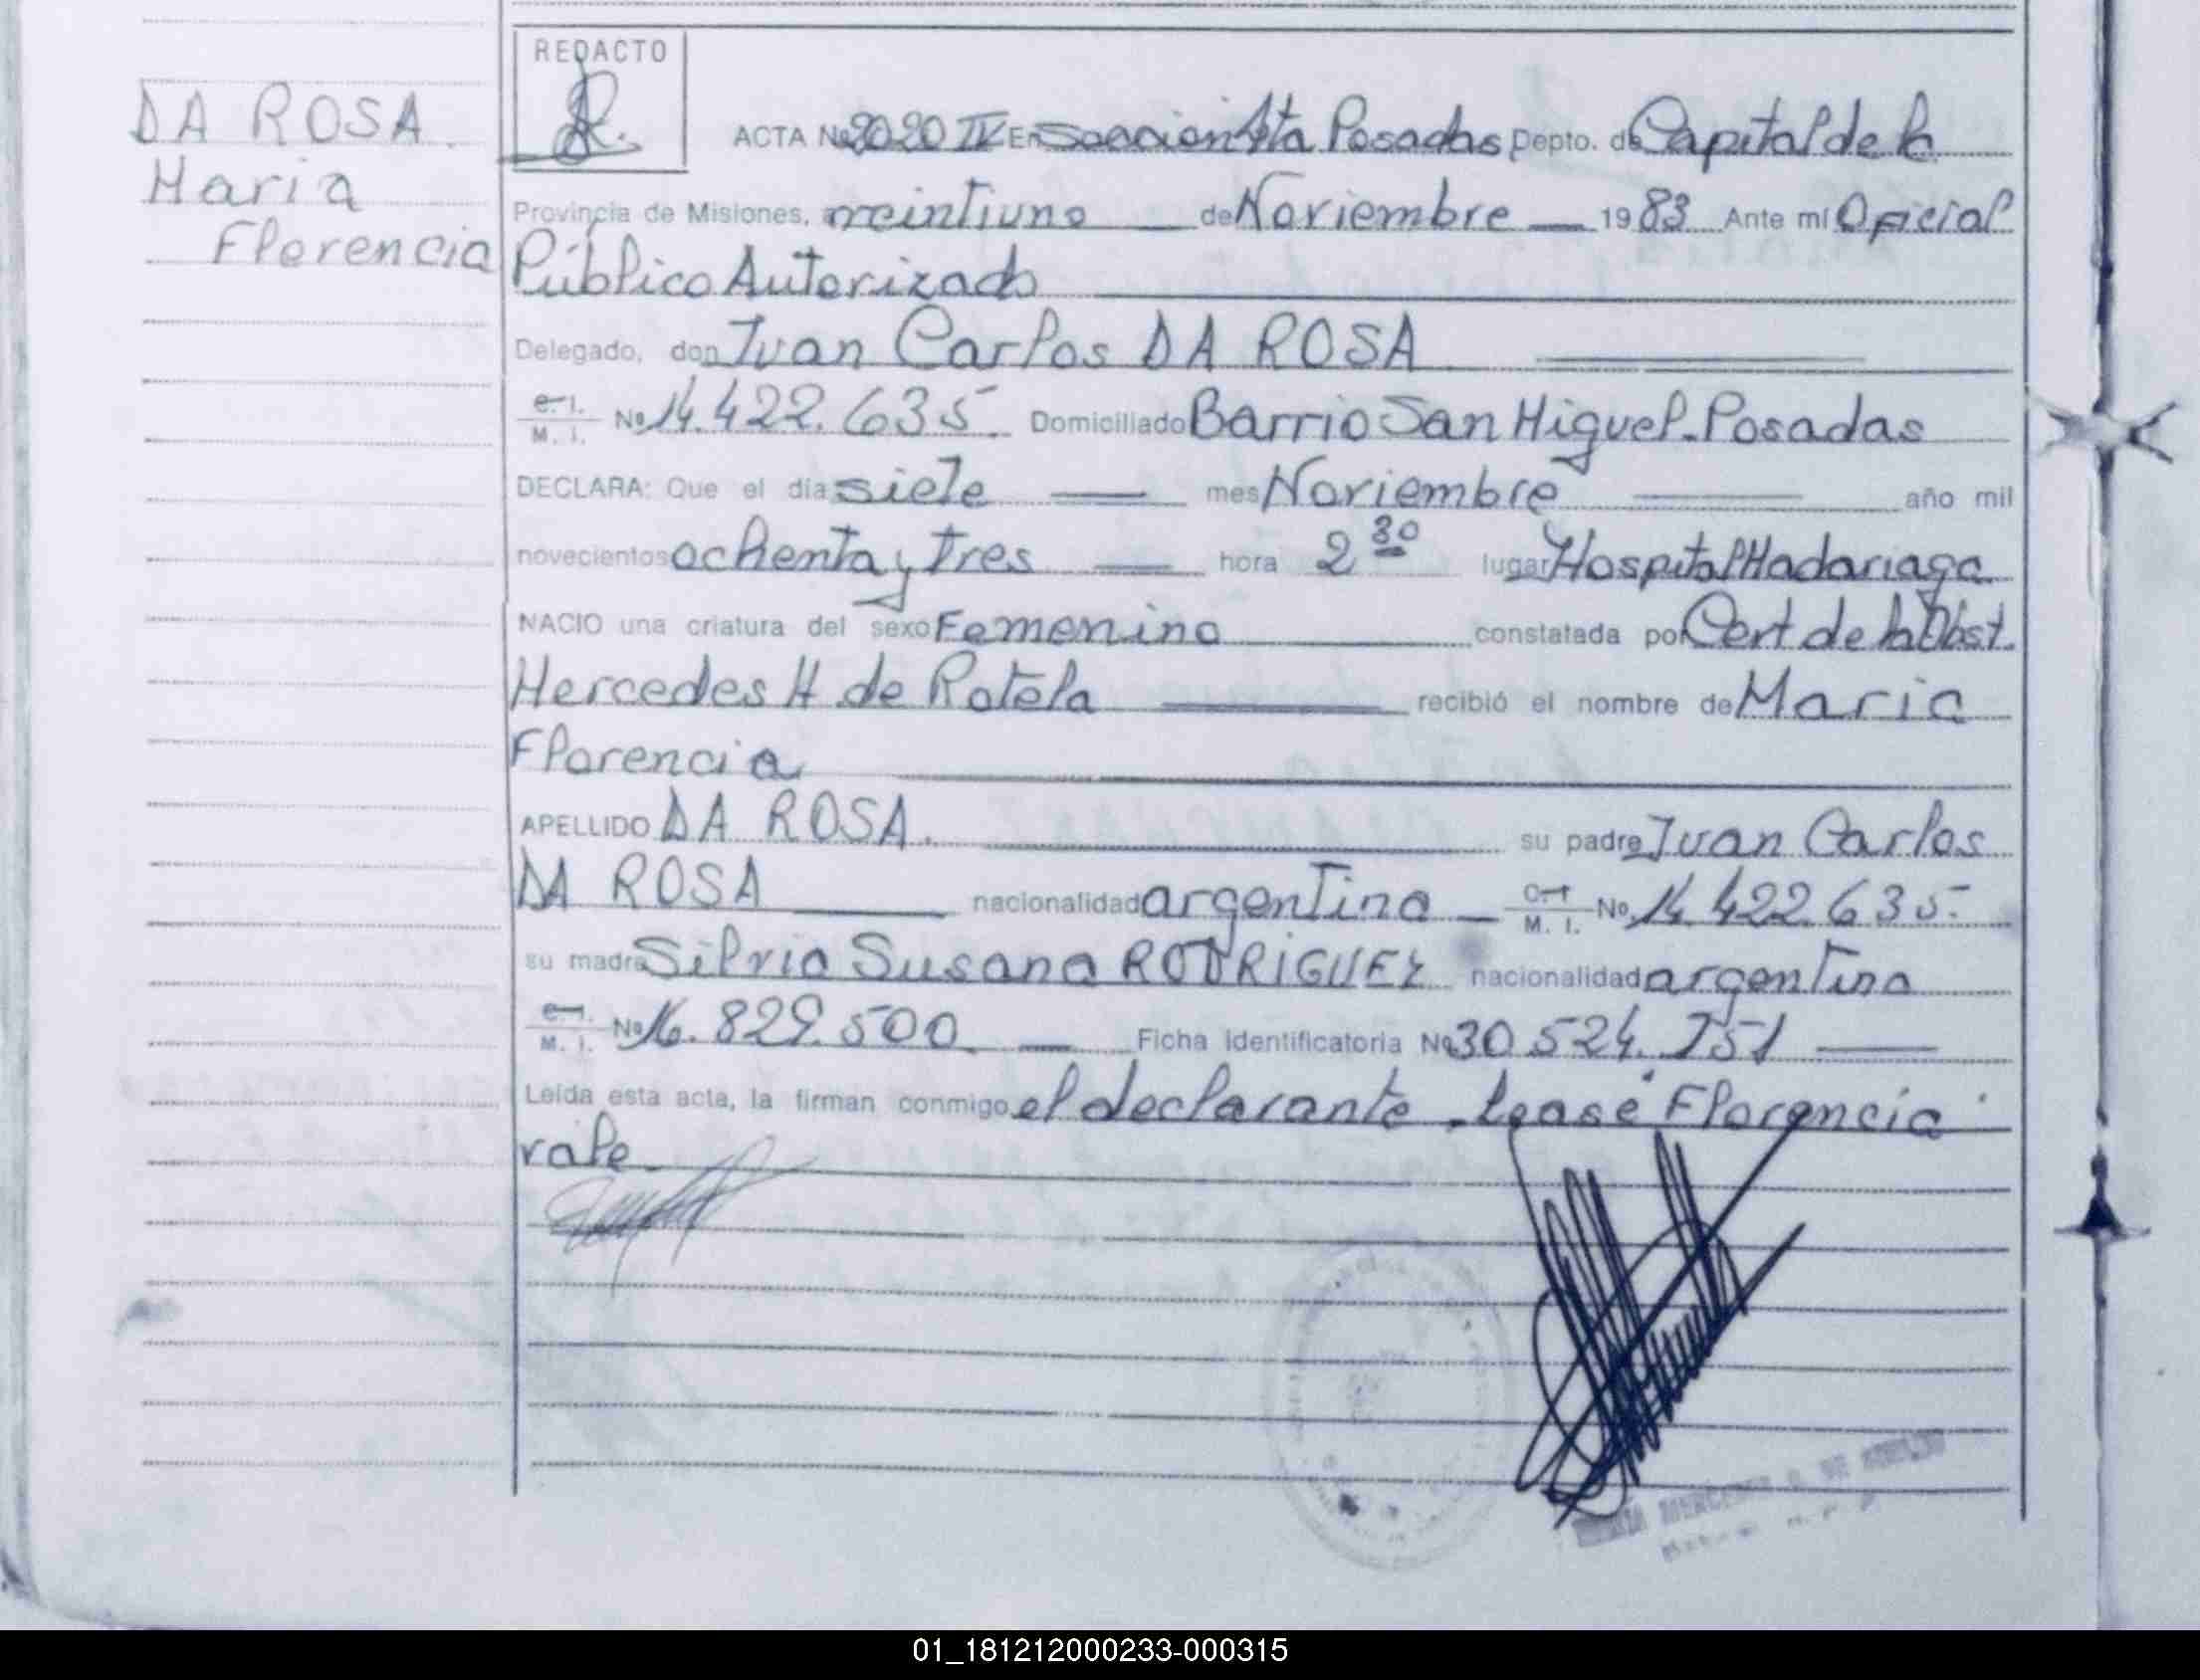 REDACTO
DA ROSA.
Maria
Florencia
ACTA No 2020 IV En Sección 4ta Posadas Depto. de Capital de la
Provincia de Misiones, a veintiuno de Noviembre 1983 Ante mí Oficial
Público Autorizado
Delegado, don Juan Carlos DA ROSA
C. I. M. I. No 14.422.635 Domiciliado Barrio San Miguel-Posadas
DECLARA: Que el día siete mes Noviembre año mil
novecientos ochenta y tres hora 2 30 lugar Hospital Madariaga
NACIO una criatura del sexo Femenino constatada por Cert de la Obst.
Mercedes M de Rotela recibió el nombre de Maria
Florencia
APELLIDO DA ROSA. su padre Juan Carlos
DA ROSA nacionalidad argentina C. I. M. I. No. 14.422.635
su madre Silvia Susana RODRIGUEZ nacionalidad argentina
C. I. M. I. No 16.829.500 Ficha identificatoria No 30.524.751
Leída esta acta, la firman conmigo el declarante - Lease "Florencia"
vale.
01_181212000233-000315